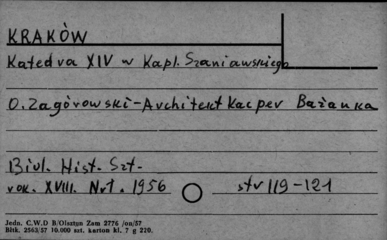 KRAKÓW
Katedra XIV w Kapl. Szaniawskiego
O. Zagórowski - Architekt Kacper Bażanka
Biul. Hist. Szt.
rok. XVIII. Nr 1. 1956 str 119-121
Jedn. C.W.D B/Olsztyn Zam 2776 /on/57
Bltk. 2563/57 10.000 szt. karton kl. 7 g 220.